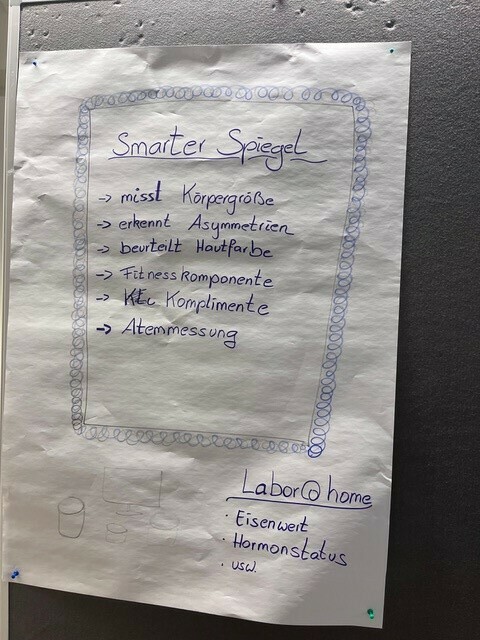 Smarter Spiegel
-> misst Körpergröße
-> erkennt Asymmetrien
-> beurteilt Hautfarbe
-> Fitnesskomponente
-> Komplimente
-> Atemmessung
Labor@home
· Eisenwert
· Hormonstatus
· usw.